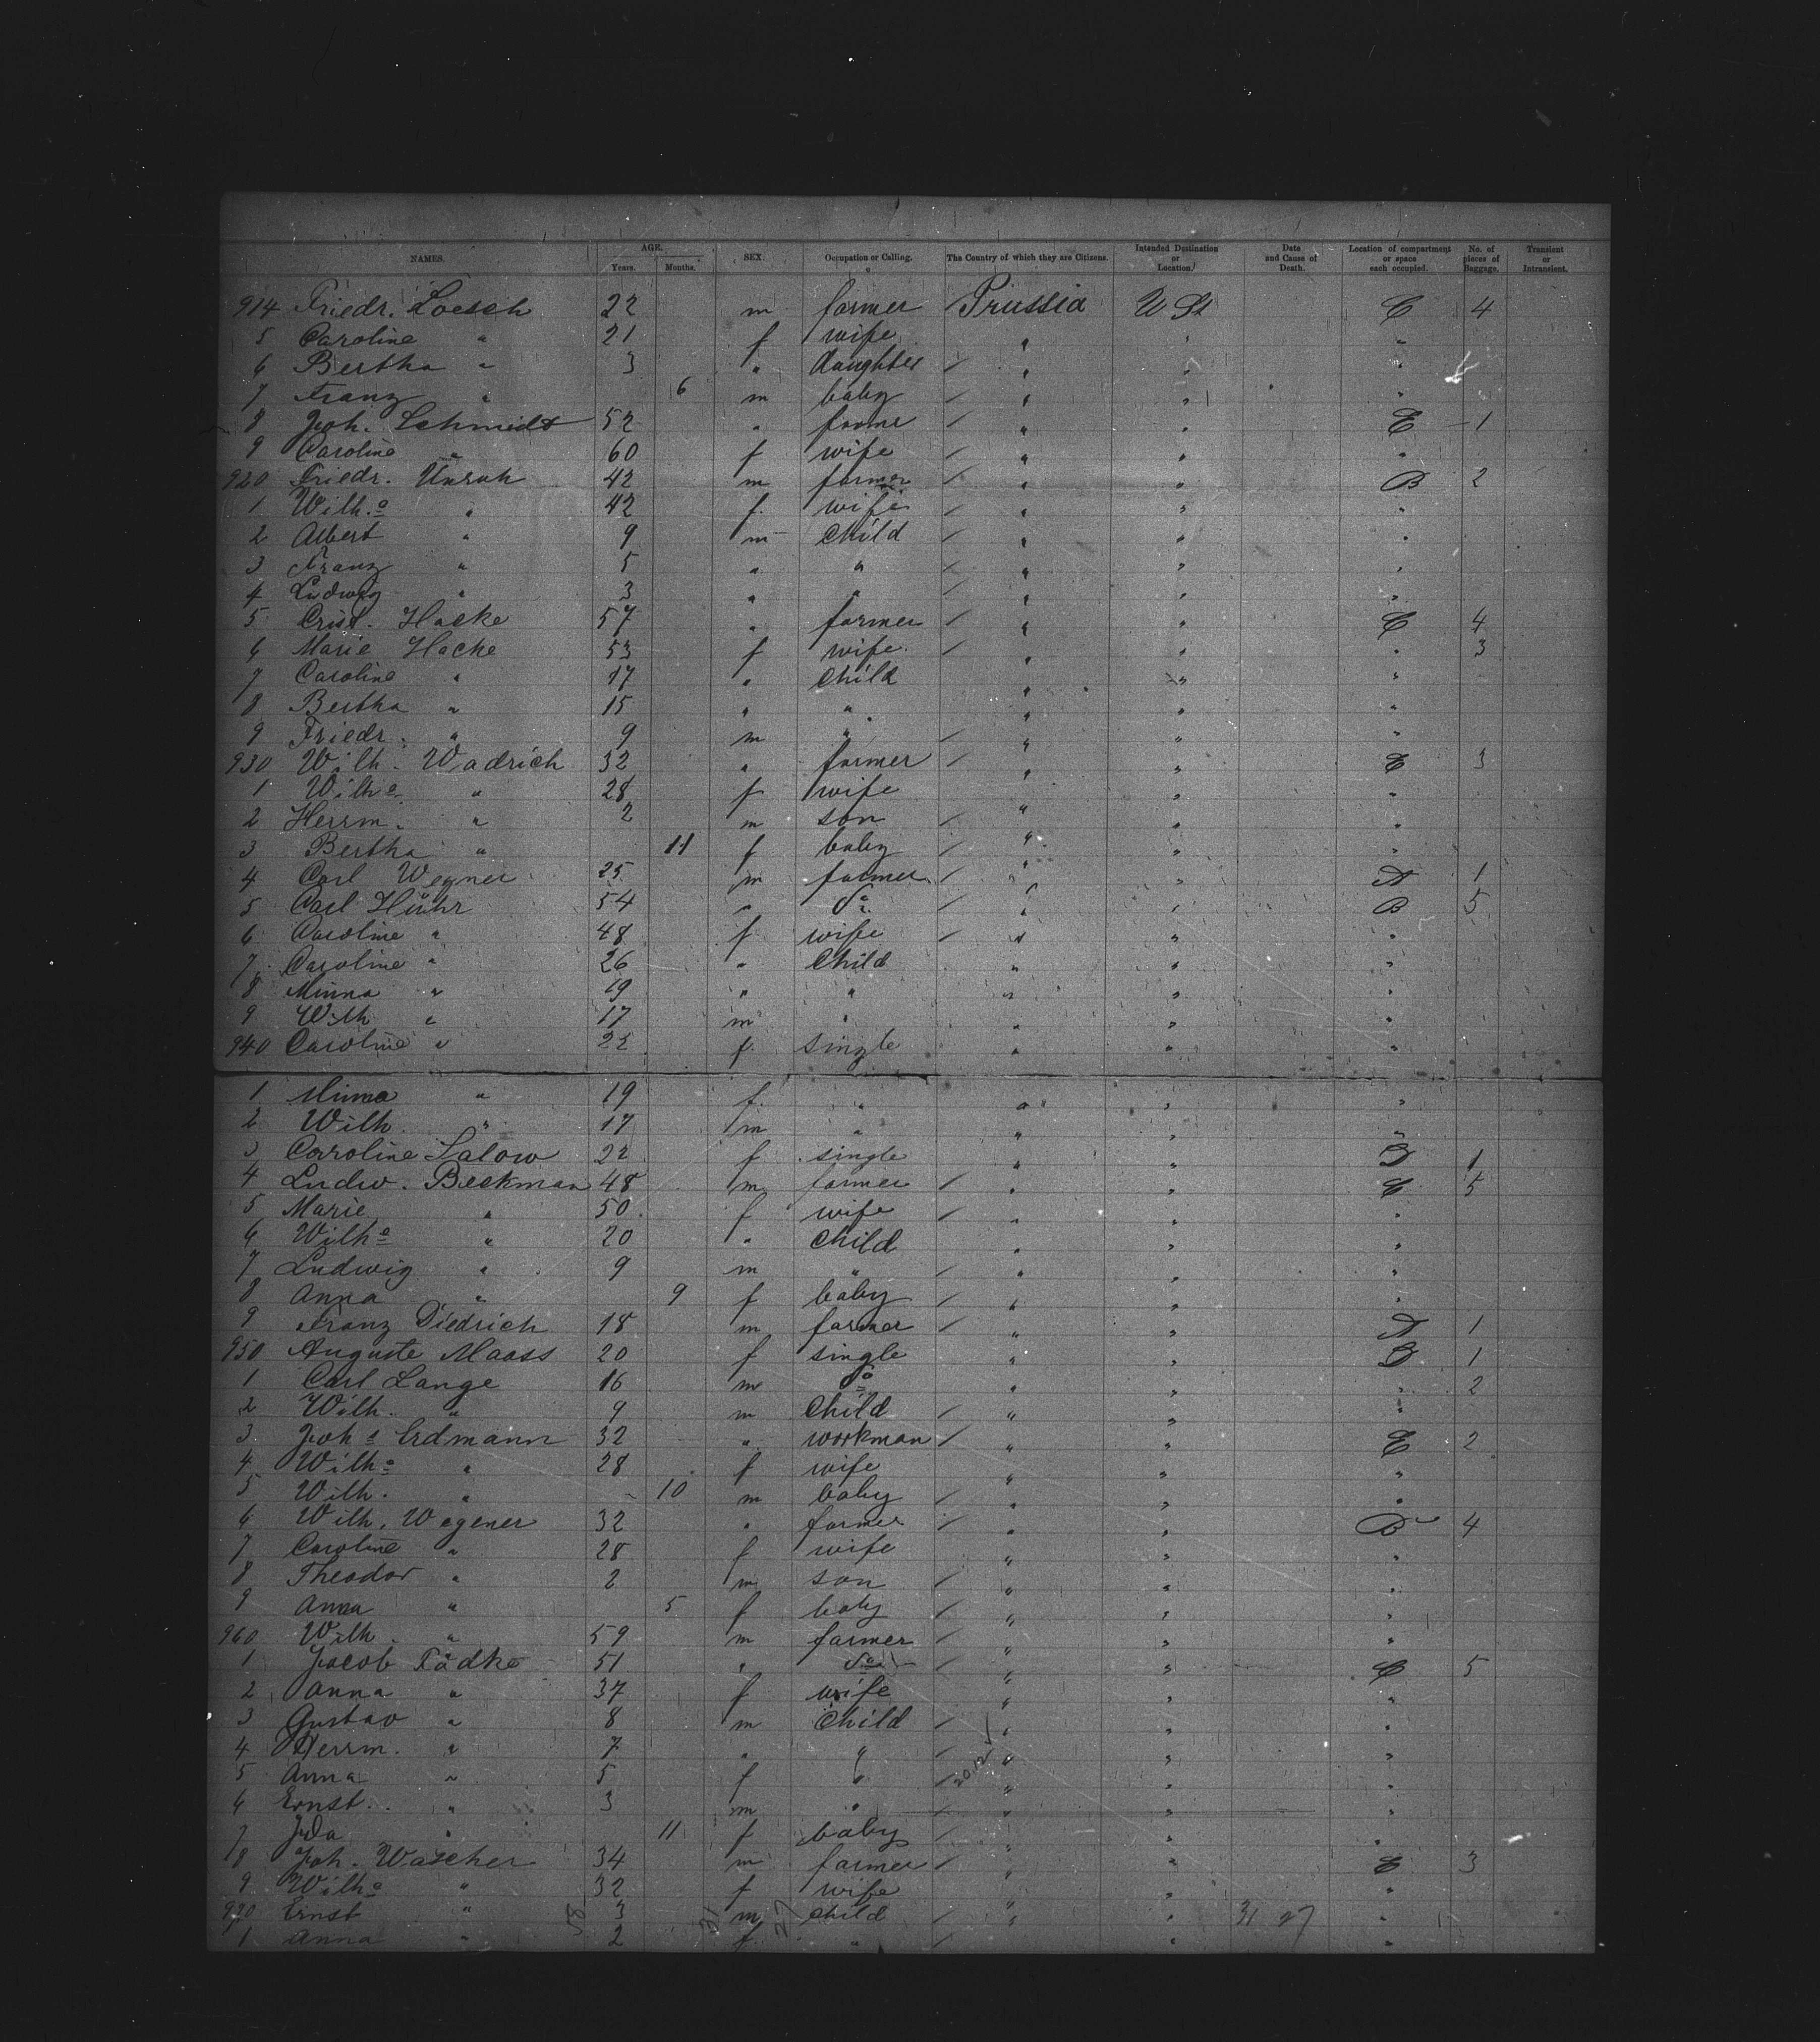 NAMES. AGE. Years. Months. SEX. Occupation or Calling. The Country of which they are Citizens. Intended Destination or Location. Date and Cause of Death. Location of compartment or space each occupied. No. of pieces of Baggage. Transient or Intransient.
914 Friedr. Loesch 22 m farmer Prussia U St C 4
5 Caroline " 21 f wife " " "
6 Bertha " 3 " daughter " " "
7 Franz " 6 m baby " " "
8 Joh. Schmidt 52 " farmer " " E 1
9 Caroline " 60 f wife " " "
920 Friedr. Unruh 42 m farmer " " B 2
1 Wilh.e " 42 f. wife " " "
2 Albert " 9 m child " " "
3 Franz " 5 " " " " "
4 Ludwig " 3 " " " " "
5 Crist. Hacke 57 " farmer " " C 4
6 Marie Hacke 53 f wife " " " 3
7 Caroline " 17 " child " " "
8 Bertha " 15 " " " " "
9 Friedr. " 9 m " " " "
930 Wilh. Wadrich 32 " farmer " " E 3
1 Wilhe " 28 f wife " " "
2 Herrm. " 2 m son " " "
3 Bertha " 11 f baby " " "
4 Carl Wegner 25 m farmer " " A 1
5 Carl Hühr 54 " do " " B 5
6 Caroline " 48 f wife " " "
7 Caroline " 26 " child " " "
8 Minna " 19 " " " " "
9 Wilh " 17 m " " " "
940 Caroline " 22 f. single " " "
1 Minna " 19 f. " " " "
2 Wilh. " 17 m " " " "
3 Carroline Salow 22 f single " " D 1
4 Ludw. Beckman 48 m farmer " " E 5
5 Marie " 50 f wife " " "
6 Wilhe " 20 " child " " "
7 Ludwig " 9 m " " " "
8 Anna " 9 f baby " " "
9 Franz Diedrich 18 m farmer " " A 1
950 Auguste Maass 20 f single " " D 1
1 Carl Lange 16 m do " " " 2
2 Wilh. " 9 m child " " "
3 Johs Erdmann 32 " workman " " E 2
4 Wilhe " 28 f wife " " "
5 Wilh. " 10 m baby " " "
6 Wilh. Wegener 32 " farmer " " B 4
7 Caroline " 28 f wife " " "
8 Theodor " 2 m son " " "
9 Anna " 5 f baby " " "
960 Wilh. " 59 m farmer " " "
1 Jacob Tadke 51 " do " " C 5
2 Anna " 37 f wife " " "
3 Gustav " 8 m child " " "
4 Herrm. " 7 " " " " "
5 Anna " 5 f " " " "
6 Ernst. " 3 m " " " "
7 Ida " 11 f baby " " "
8 Joh. Wascher 34 m farmer " " E 3
9 Wilhe " 32 f wife " " "
970 Ernst " 58 3 31 m 27 child " " 31 27 "
1 Anna " 2 f. " " " "